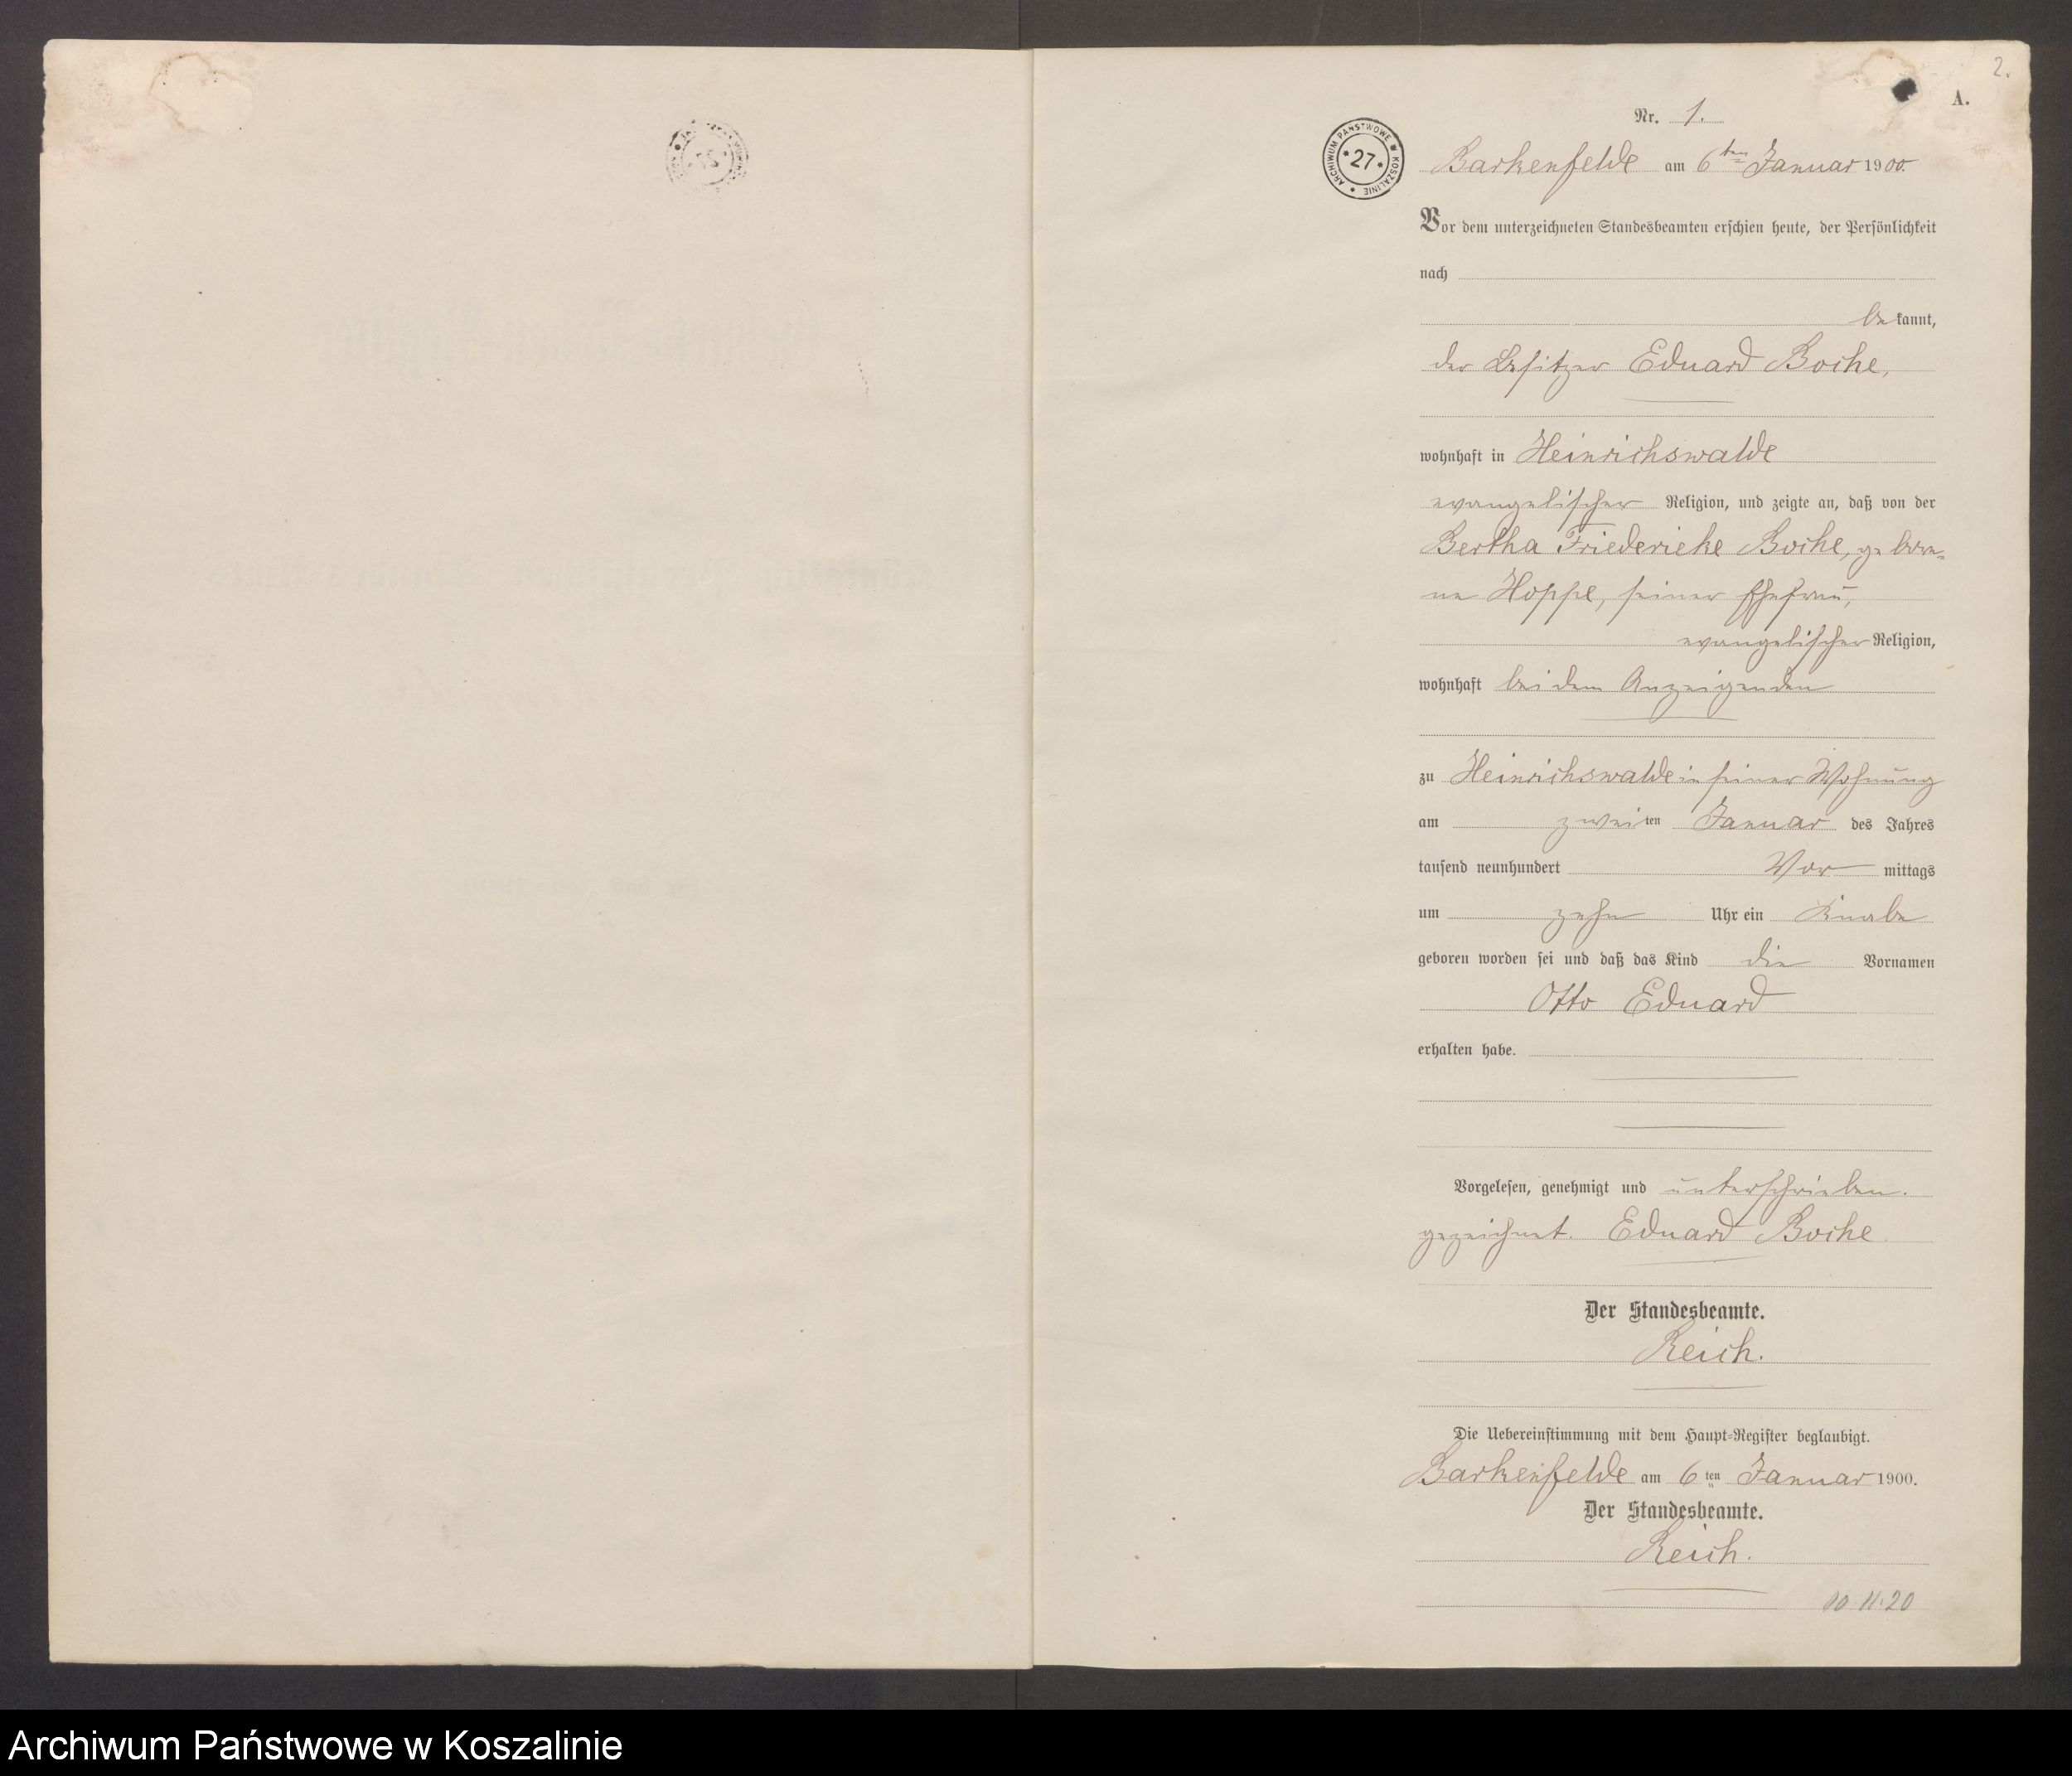 2.
A.
Nr. 1.
ARCHIWUM PAŃSTWOWE W KOSZALINIE
* 27 *
Barkenfelde am 6ten Januar 1900.
Vor dem unterzeichneten Standesbeamten erschien heute, der Persönlichkeit
nach
bekannt,
der Besitzer Eduard Boche,
wohnhaft in Heinrichswalde
evangelischer Religion, und zeigte an, daß von der
Bertha Friederieke Boche, gebore=
ne Hoppe, seiner Ehefrau,
evangelischer Religion,
wohnhaft bei dem Anzeigenden
zu Heinrichswalde in seiner Wohnung
am zweiten Januar des Jahres
tausend neunhundert Vormittags
um zehn Uhr ein Knabe
geboren worden sei und daß das Kind die Vornamen
Otto Eduard
erhalten habe.
Vorgelesen, genehmigt und unterschrieben.
gezeichnet. Eduard Boche.
Der Standesbeamte.
Reich.
Die Uebereinstimmung mit dem Haupt=Register beglaubigt.
Barkenfelde am 6ten Januar 1900.
Der Standesbeamte.
Reich.
Archiwum Państwowe w Koszalinie